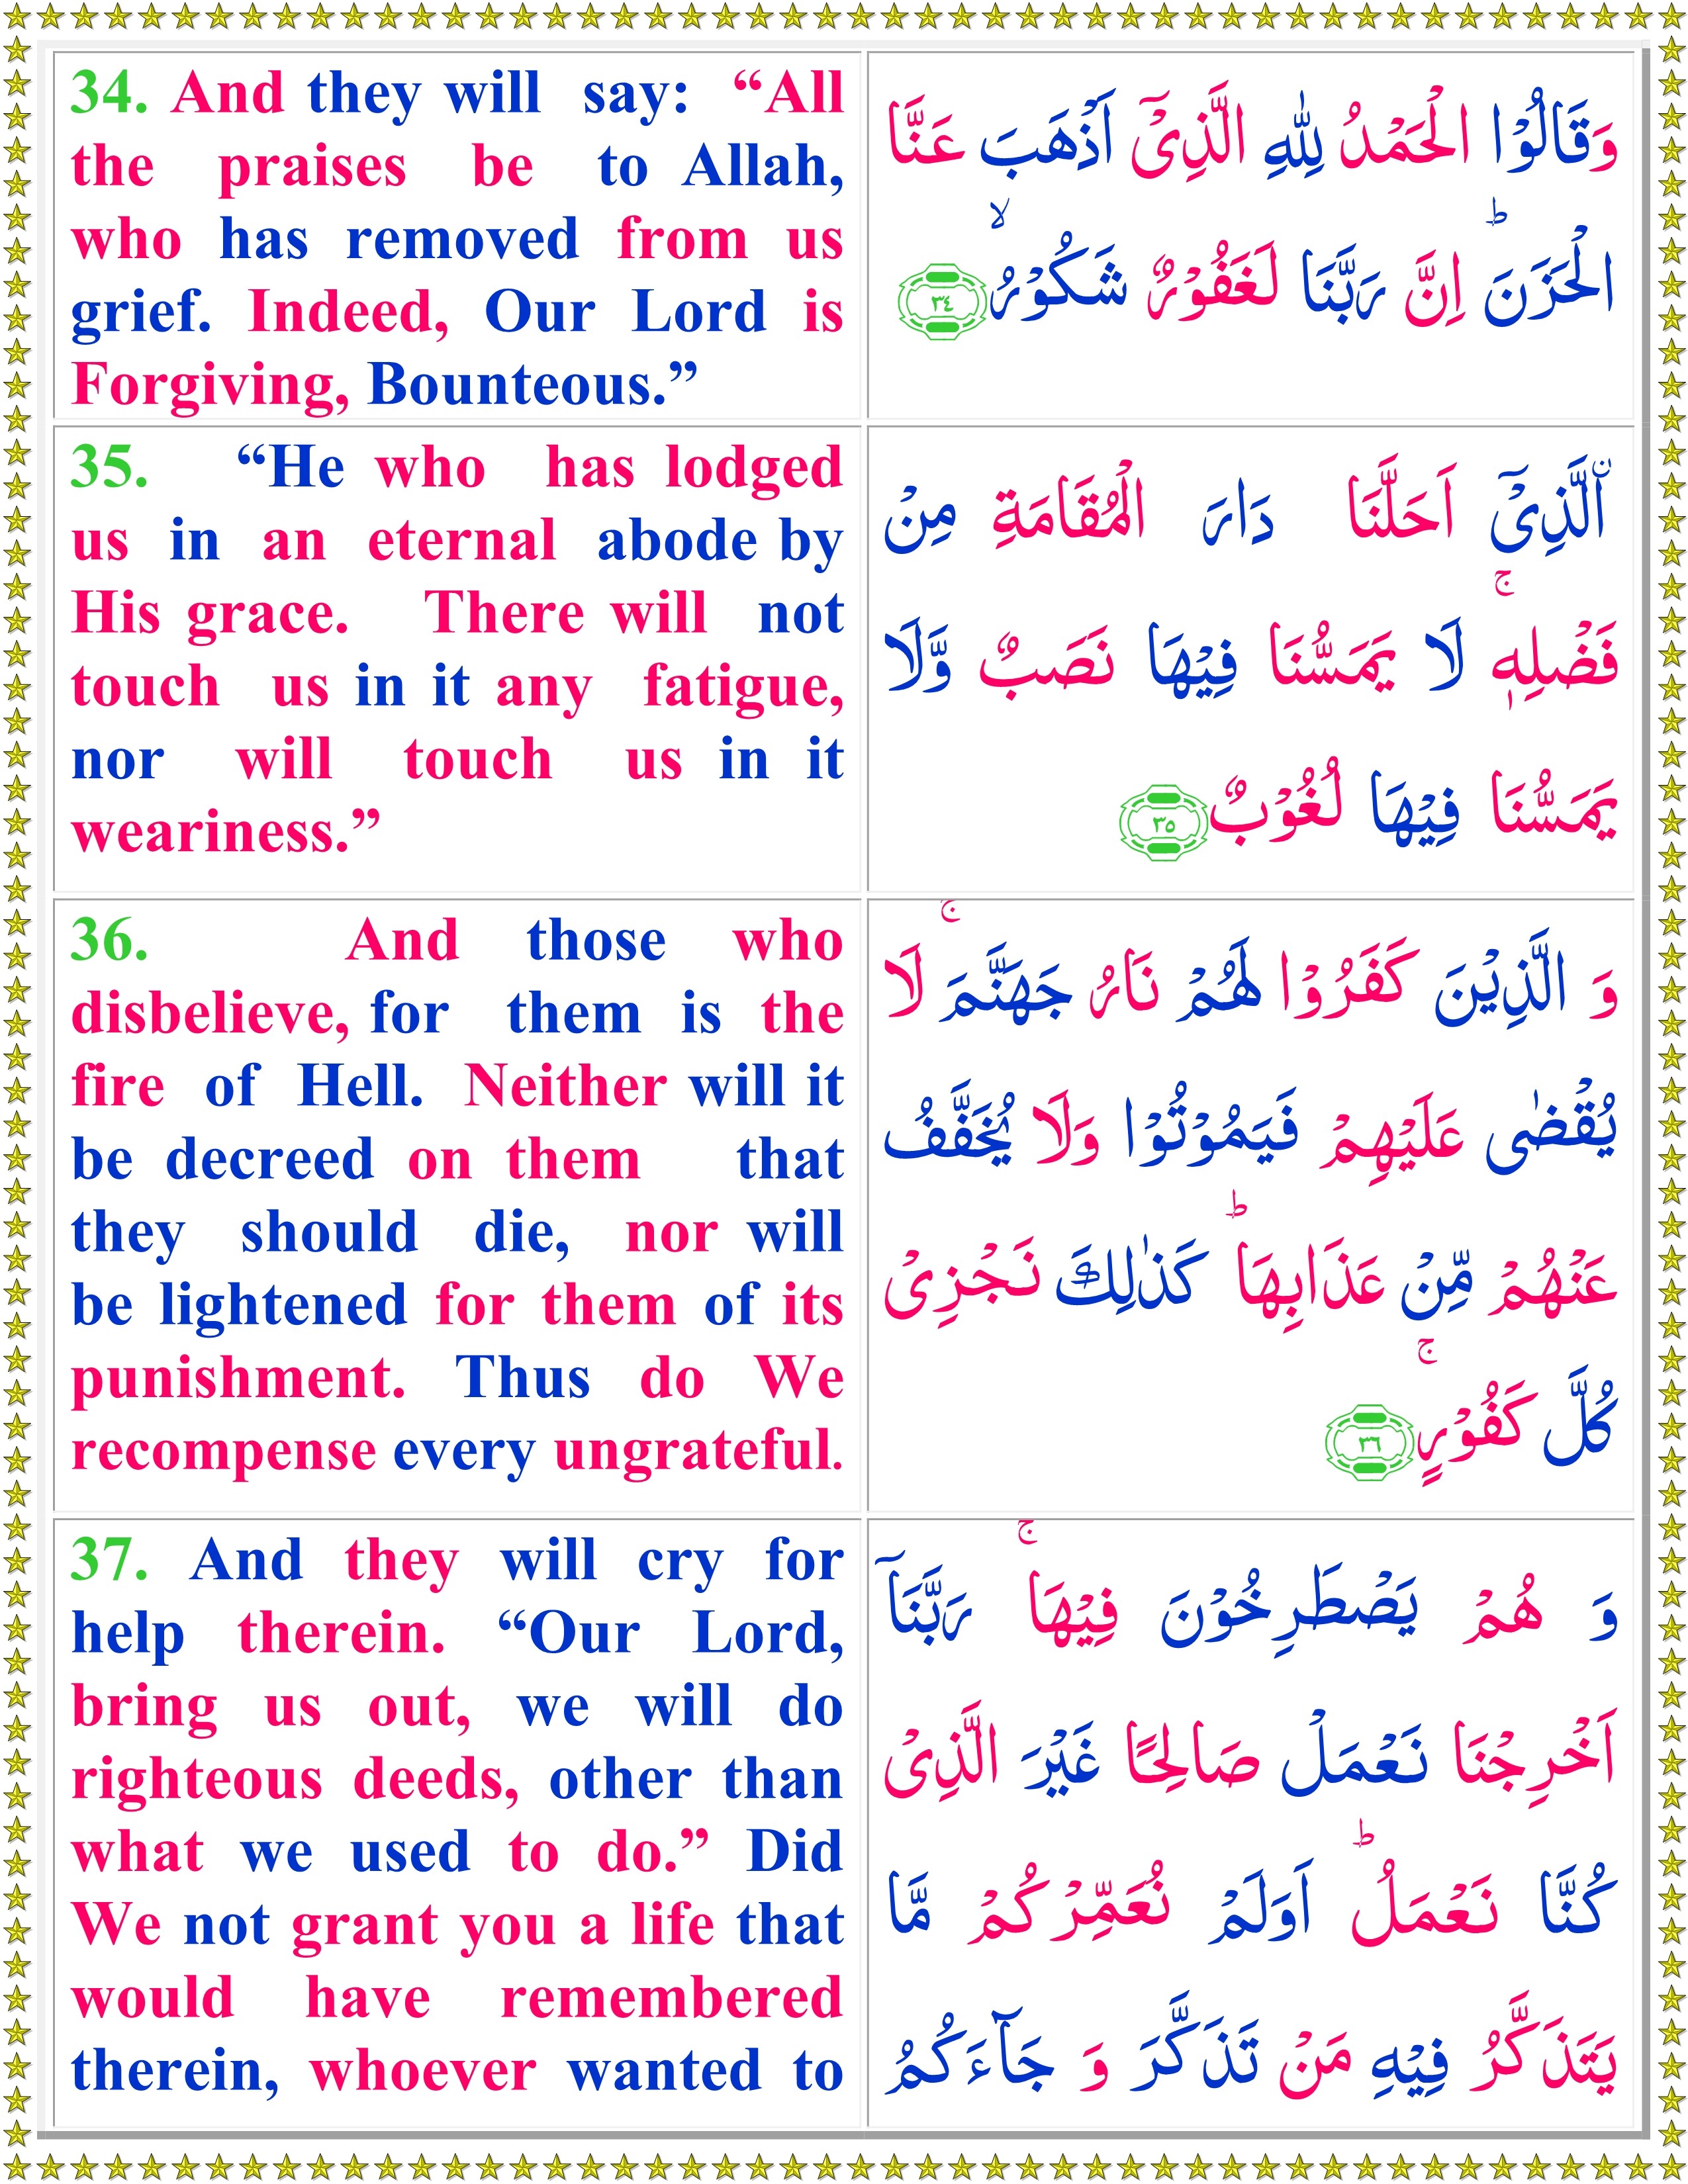 34. And they will say: “All
the praises be to Allah,
who has removed from us
grief. Indeed, Our Lord is
Forgiving, Bounteous.”
وَقَالُوْا الْحَمْدُ لِلّٰهِ الَّذِىْۤ اَذْهَبَ عَنَّا
الْحَزَنَ ؕ اِنَّ رَبَّنَا لَغَفُوْرٌ شَكُوْرُ ۙ ٣٤
35. “He who has lodged
us in an eternal abode by
His grace. There will not
touch us in it any fatigue,
nor will touch us in it
weariness.”
اۨلَّذِىْۤ اَحَلَّنَا دَارَ الْمُقَامَةِ مِنْ
فَضْلِهٖ ۚ لَا يَمَسُّنَا فِيْهَا نَصَبٌ وَّلَا
يَمَسُّنَا فِيْهَا لُغُوْبٌ ٣٥
36. And those who
disbelieve, for them is the
fire of Hell. Neither will it
be decreed on them that
they should die, nor will
be lightened for them of its
punishment. Thus do We
recompense every ungrateful.
وَ الَّذِيْنَ كَفَرُوْا لَهُمْ نَارُ جَهَنَّمَ ۚ لَا
يُقْضٰى عَلَيْهِمْ فَيَمُوْتُوْا وَلَا يُخَفَّفُ
عَنْهُمْ مِّنْ عَذَابِهَا ؕ كَذٰلِكَ نَجْزِىْ
كُلَّ كَفُوْرٍ ۚ ٣٦
37. And they will cry for
help therein. “Our Lord,
bring us out, we will do
righteous deeds, other than
what we used to do.” Did
We not grant you a life that
would have remembered
therein, whoever wanted to
وَ هُمْ يَصْطَرِخُوْنَ فِيْهَا ۚ رَبَّنَاۤ
اَخْرِجْنَا نَعْمَلْ صَالِحًا غَيْرَ الَّذِىْ
كُنَّا نَعْمَلُ ؕ اَوَلَمْ نُعَمِّرْكُمْ مَّا
يَتَذَكَّرُ فِيْهِ مَنْ تَذَكَّرَ وَ جَآءَكُمُ